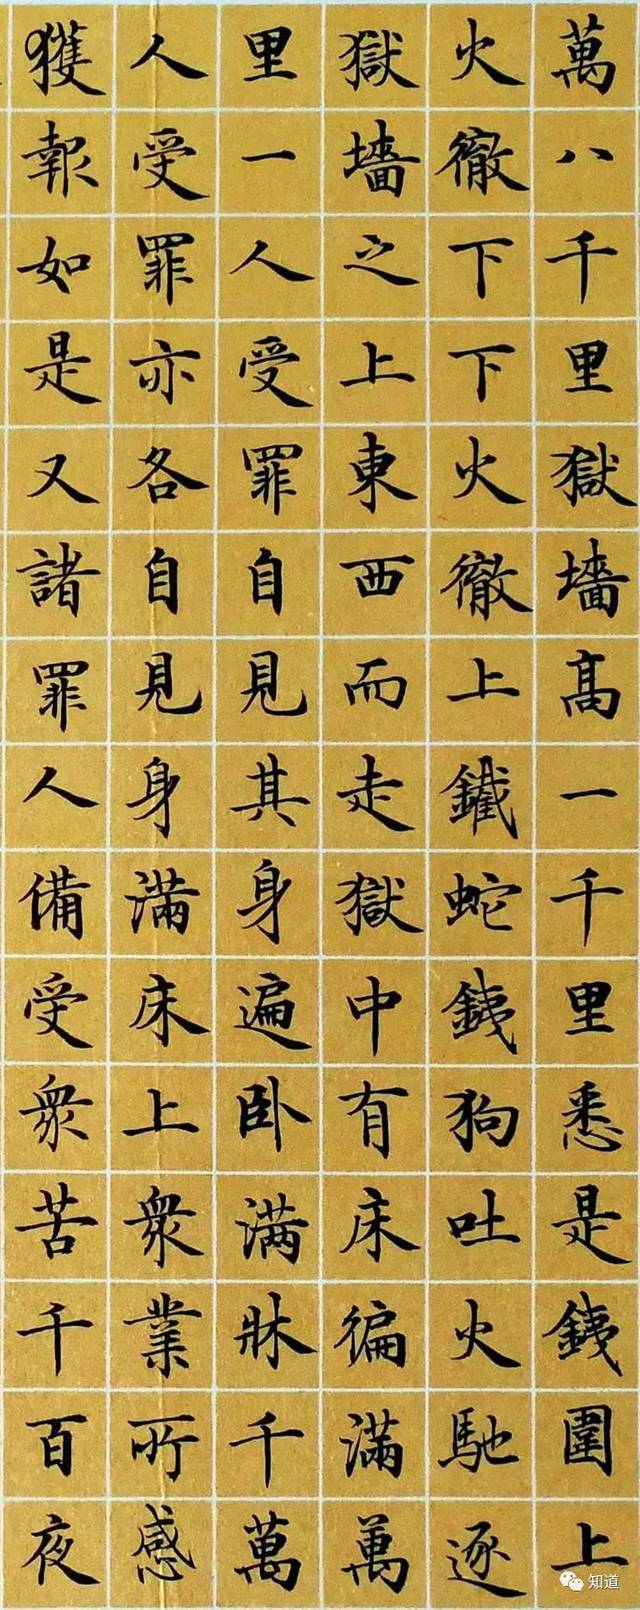 萬八千里獄墻髙一千里悉是銕圍上
火徹下下火徹上鐵蛇銕狗吐火馳逐
獄墻之上東西而走獄中有床徧滿萬
里一人受罪自見其身遍卧满牀千萬
人受罪亦各自見身滿床上衆業所感
獲報如是又諸罪人備受衆苦千百夜
知道